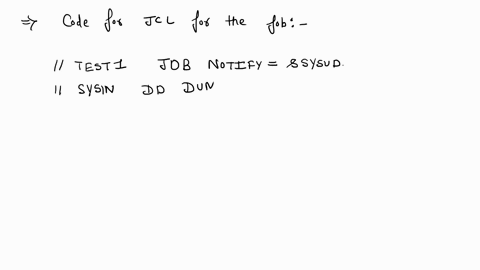 ⇒ Code for JCL for the job:-
// TEST1 JOB NOTIFY = &SYSUD.
// SYSIN DD DUN